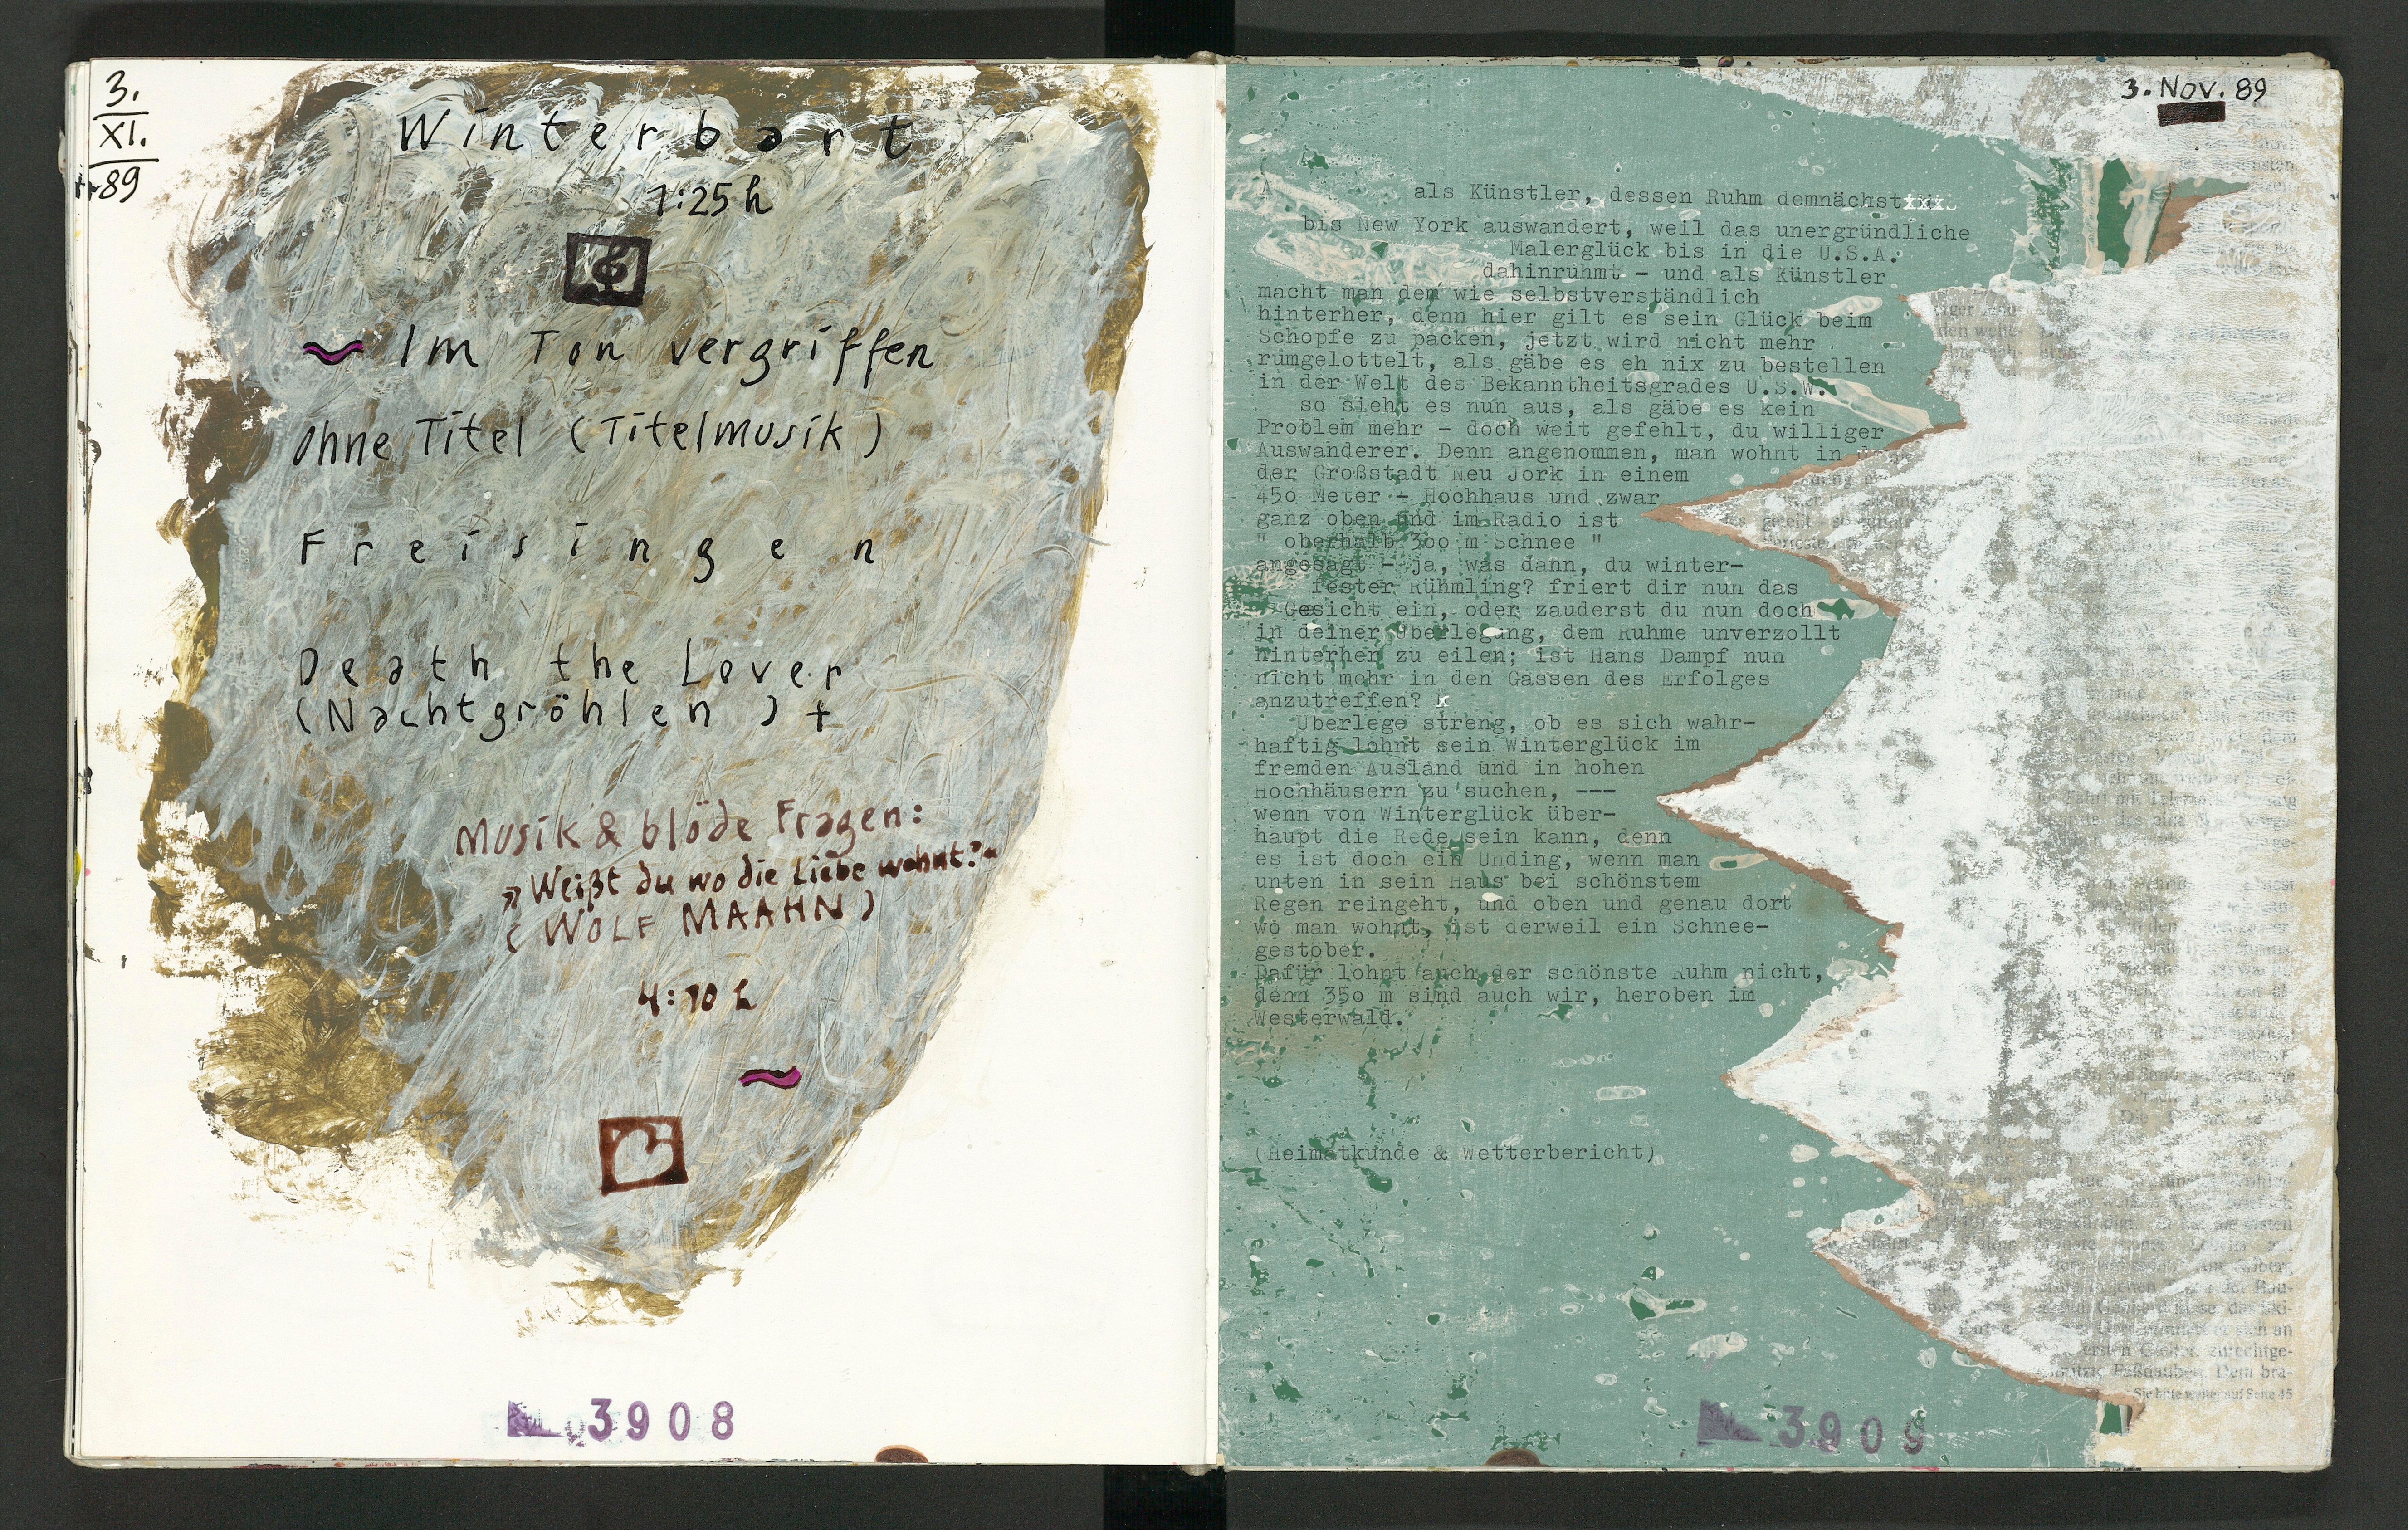 3.
XI.
89
Winterbart
1:25 h
~ Im Ton vergriffen
ohne Titel (Titelmusik)
Freisingen
Death the Lover
(Nachtgröhlen) +
Musik & blöde Fragen:
"Weißt du wo die Liebe wohnt?"
(WOLF MAAHN)
4:10 h
~
3908
3. Nov. 89
als Künstler, dessen Ruhm demnächstxxx
bis New York auswandert, weil das unergründliche
Malerglück bis in die U.S.A.
dahinruhmt - und als Künstler
macht man dem wie selbstverständlich
hinterher, denn hier gilt es sein Glück beim
Schopfe zu packen, jetzt wird nicht mehr
rumgelottelt, als gäbe es eh nix zu bestellen
in der Welt des Bekanntheitsgrades U.S.W.
so sieht es nun aus, als gäbe es kein
Problem mehr - doch weit gefehlt, du williger
Auswanderer. Denn angenommen, man wohnt in
der Großstadt Neu Jork in einem
450 Meter - Hochhaus und zwar
ganz oben und im Radio ist
" oberhalb 300 m Schnee "
angesagt - ja, was dann, du winter-
fester Rühmling? friert dir nun das
Gesicht ein, oder zauderst du nun doch
in deiner Überlegung, dem Ruhme unverzollt
hinterher zu eilen; ist Hans Dampf nun
nicht mehr in den Gassen des Erfolges
anzutreffen? x
Überlege streng, ob es sich wahr-
haftig lohnt sein Winterglück im
fremden Ausland und in hohen
Hochhäusern zu suchen, ---
wenn von Winterglück über-
haupt die Rede sein kann, denn
es ist doch ein Unding, wenn man
unten in sein Haus bei schönstem
Regen reingeht, und oben und genau dort
wo man wohnt, ist derweil ein Schnee-
gestöber.
Dafür lohnt auch der schönste Ruhm nicht,
denn 350 m sind auch wir, heroben im
Westerwald.
(Heimatkunde & Wetterbericht)
Sie bitte weiter auf Seite 45
3909